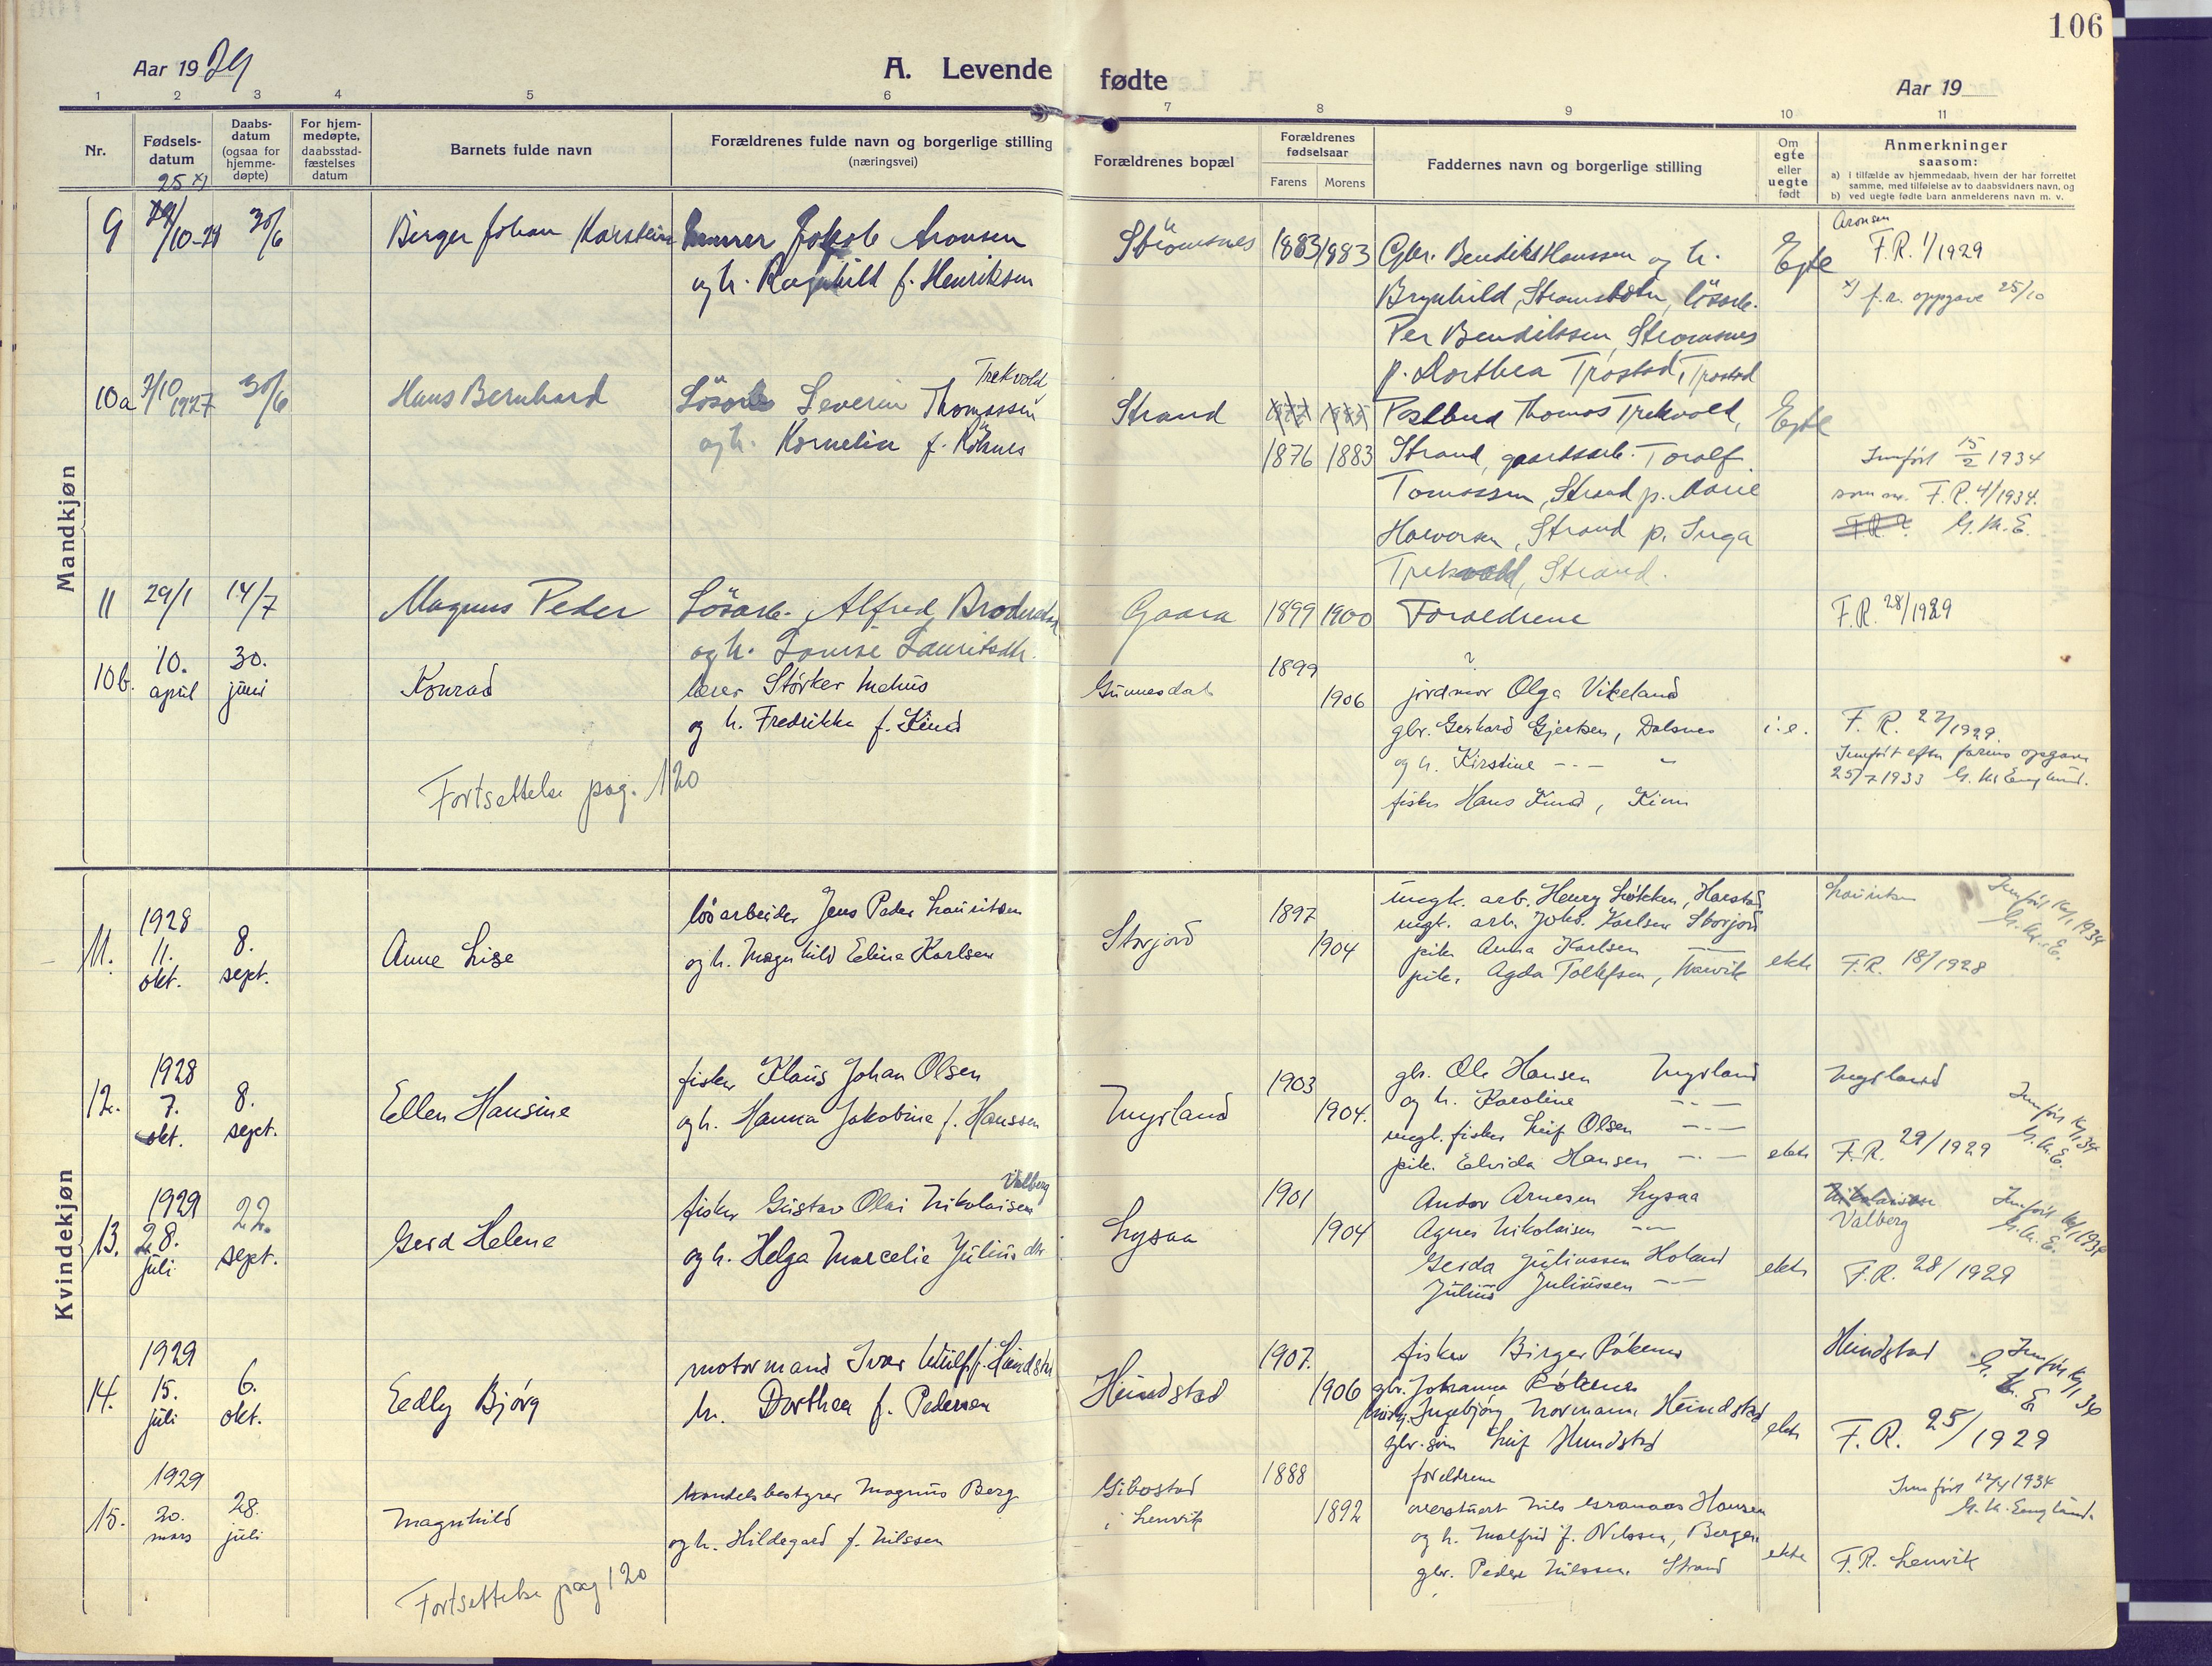 106
Aar 1929
A. Levende fødte
Aar 19
1 2 3 4 5 6 7 8 9 10 11
Nr.
Fødsels-
datum
Daabs-
datum
(ogsaa for
hjemme-
døpte)
For hjem-
medøpte,
daabsstad-
fæstelses
datum
Barnets fulde navn
Forældrenes fulde navn og borgerlige stilling
(næringsvei)
Forældrenes bopæl
Forældrenes
fødselsaar
Farens Morens
Faddernes navn og borgerlige stilling
Om
egte
eller
uegte
født
Anmerkninger
saasom:
a) I tilfælde av hjemmedaab, hvem der har forrettet
samme, med tilføielse av to daabsvidners navn, og
b) ved uegte fødte barn anmelderens navn m. v.
Mandkjøn
25 x)
9 /10-28 30/6 Berger Johan Karstein
Jakob Aronsen
og h. Ragnhild f. Henriksen
Strömsnes 1883 1883
Gbr. Bendikt Hanssen og h.
Brynhild, Strömsbotn, lösarb.
Per Bendikssen, Stromsnes
p. Dorthea Trøstad, Trøstad
Egte
Aronsen
F.R. 1/1929
x) f.r. oppgave 25/10
10a 7/10 1927 30/6 Hans Bernhard
Trekvold
Lösarb. Severin Thomassen
og h. Kornelia f. Röknes
Strand
1876 1883
Postbud Thomas Trekvold,
Strand, gaardsarb. Toralf
Tomassen, Strand p. Marie
Halvorsen, Strand p. Inga
Trekvold, Strand.
Egte
Innfört 15/2 1934
som nr. F.R. 4/1934.
G.K.E.
11 29/1 14/7 Magnus Peder
Lösarb. Alfred Brodersen
og h. Louise Lauritsdtr.
Gaara 1899 1900 Foraeldrene
F.R. 28/1929
10b. 10. april 30. juni Konrad
lærer Størker Mehus
og h. Fredrikke f. Kind
Gunnesdal 1899 1906
?
jordmor Olga Vikeland
gbr. Gerhard Gjertsen, Dalsnes
og h. Kirstine - - - "
fisker Hans Kind,
i.e.
F. R. 22/1929.
Innført efter farens opgave
25/7 1933 G. Kr Englund.
Fortsettelse pag. 120
Kvindekjøn
11. 1928 11. okt. 8. sept. Anne Lise
lösarbeider Jens Peder Lauritsen
og h. Magnhild Eline Karlsen
Storjord 1897 1904
ungk. arb. Henry Løkken, Harstad
ungk. arb. Johs. Karlsen Storjord
pike Anna Karlsen
pike, Agda Tollefsen,
ekte
Lauritsen
F.R. 18/1928
Innført 16/1 1934
G.Kr.E.
12. 1928 7. okt. 8. sept. Ellen Hansine
fisker Klaus Johan Olsen
og h. Hanna Jakobine f. Hanssen
Nygland 1903 1904.
gbr. Ole Hansen Nygland
og h. Karoline - -
ungk. fisker Leif Olsen - -
pike. Elvida Hansen - -
ekte
Nygland
F.R. 29/1929
Innført 16/1 34
G.K.E.
13. 1929 28. juli 22. sept. Gerd Helene
Valberg
fisker Gustav Olai Nikolaisen
og h. Helga Marcelie Juliusdtr
Lysaa 1901 1904
Andor Arnesen Lysaa
Agnes Nikolaisen - -
Gerda Juliussen Holand
Julius Juliussen - -
ekte
Nikolaisen
Valberg
F.R. 28/1929
Innført 16/1 1934
G.K.E.
14. 1929 15. juli 6. okt. Eedly Bjørg
motormand Ivar Wulff Heindstad
h. Dorthea f. Pedersen
Heindstad 1907. 1906
fisker Birger Røkenes
gbr. Johanna Røkenes
Ingebjørg Normann Heindstad
gbr. søn Leif Hundstad
ekte
Heindstad
F.R. 25/1929
Innført 16/1 34
G. K. E
15. 1929 20. mars 28. juli Magnhild
handelsbestyrer Magnus Berg
og h. Hildegard f. Nilssen
Gibostad
i Lenvik
1888 1892
foreldrene
overstuert Nils Hansen
og h. Malfrid f. Nilssen, Bergen
gbr. Peder Nilssen Strand
ekte
Innført 12/4 1934
G. K. Englund.
F.R. Lenvik
Fortsettelse pag 120